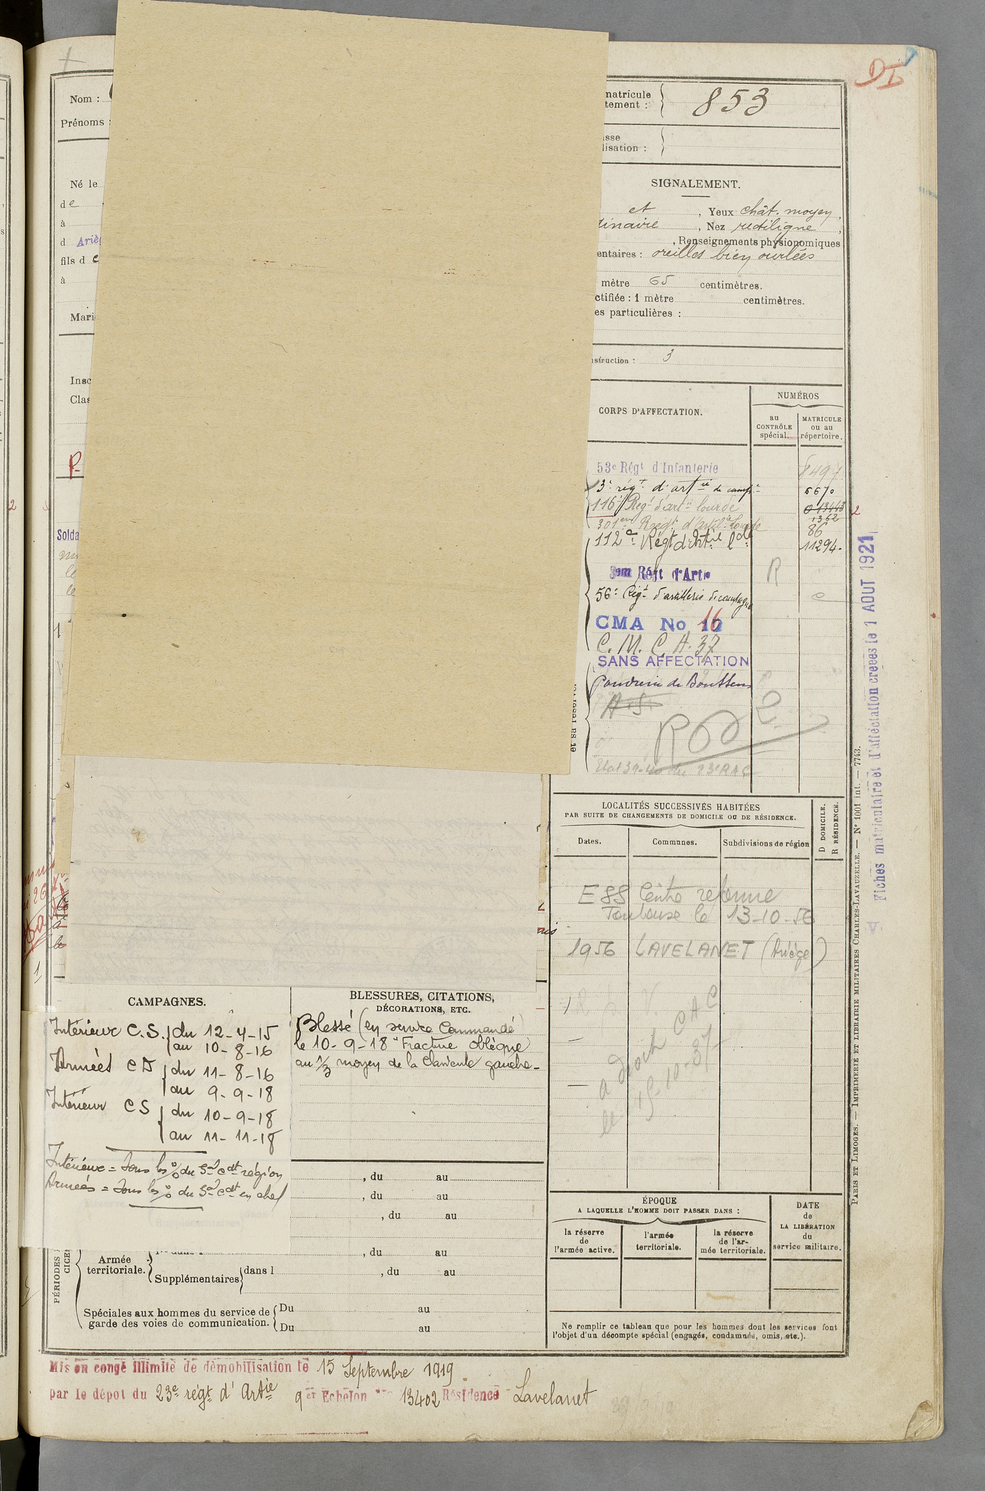 DI
Nom :
Prénoms :
Né le
de
à
d Ariè
fils d e
à
Mari
Insc
Clas
P
Solda
matricule
tement :
853
sse
lisation :
SIGNALEMENT.
et , Yeux chât. moyen,
dinaire , Nez rectiligne ,
, Renseignements physionomiques
entaires : oreilles bien ourlées
mètre 65 centimètres.
ctifiée : 1 mètre centimètres.
es particulières :
struction : 3
CORPS D'AFFECTATION.
NUMÉROS
au CONTRÔLE spécial.
MATRICULE ou au répertoire.
53e Régt d'Infanterie 8497
3e régt d'artie de campe 6670
116e Regt d'art. lourde
301eme Regt d'art. lourde 86
112e Régt d'Artie Lde 11294
Régt d'Artie R
56e Régt d'artillerie de campagne
CMA No 16
C. M. C. A. 37
SANS AFFECTATION
Poudrerie de Boussens
A S
LOCALITÉS SUCCESSIVES HABITÉES
PAR SUITE DE CHANGEMENTS DE DOMICILE OU DE RÉSIDENCE.
Dates.
Communes.
Subdivisions de région
D DOMICILE,
R RÉSIDENCE.
E88 Centre reforme
Toulouse le 13-10-56
1956 LAVELANET (Ariège)
a droit CAC
le 15-10-37
Fiches matriculaire et d'affectation créées le 1 AOUT 1921
PARIS ET LIMOGES. — IMPRIMERIE ET LIBRAIRIE MILITAIRES CHARLES-LAVAUZELLE. — N° 1001 int. — 7743.
CAMPAGNES.
Intérieur C.S. du 12-4-15
au 10-8-16
Armées CD du 11-8-16
au 9-9-18
Intérieur CS du 10-9-18
au 11-11-18
BLESSURES, CITATIONS,
DÉCORATIONS, ETC.
Blessé (en service Commandé)
le 10-9-18 "Fracture oblique
au 1/3 moyen de la clavicule gauche.
, du au
, du au
, du au
, du au
PÉRIODES
Armée
territoriale.
Supplémentaires dans l , du au
Spéciales aux hommes du service de
garde des voies de communication.
Du au
Du au
ÉPOQUE
A LAQUELLE L'HOMME DOIT PASSER DANS :
la réserve de l'armée active.
l'armée territoriale.
la réserve de l'armée territoriale.
DATE de LA LIBÉRATION du service militaire.
Ne remplir ce tableau que pour les hommes dont les services font
l'objet d'un décompte spécial (engagés, condamnés, omis, etc.).
Mis en congé illimité de démobilisation le 15 Septembre 1919
par le dépôt du 23e régt d'Artie 9et Echelon n° 13402 Résidence Lavelanet